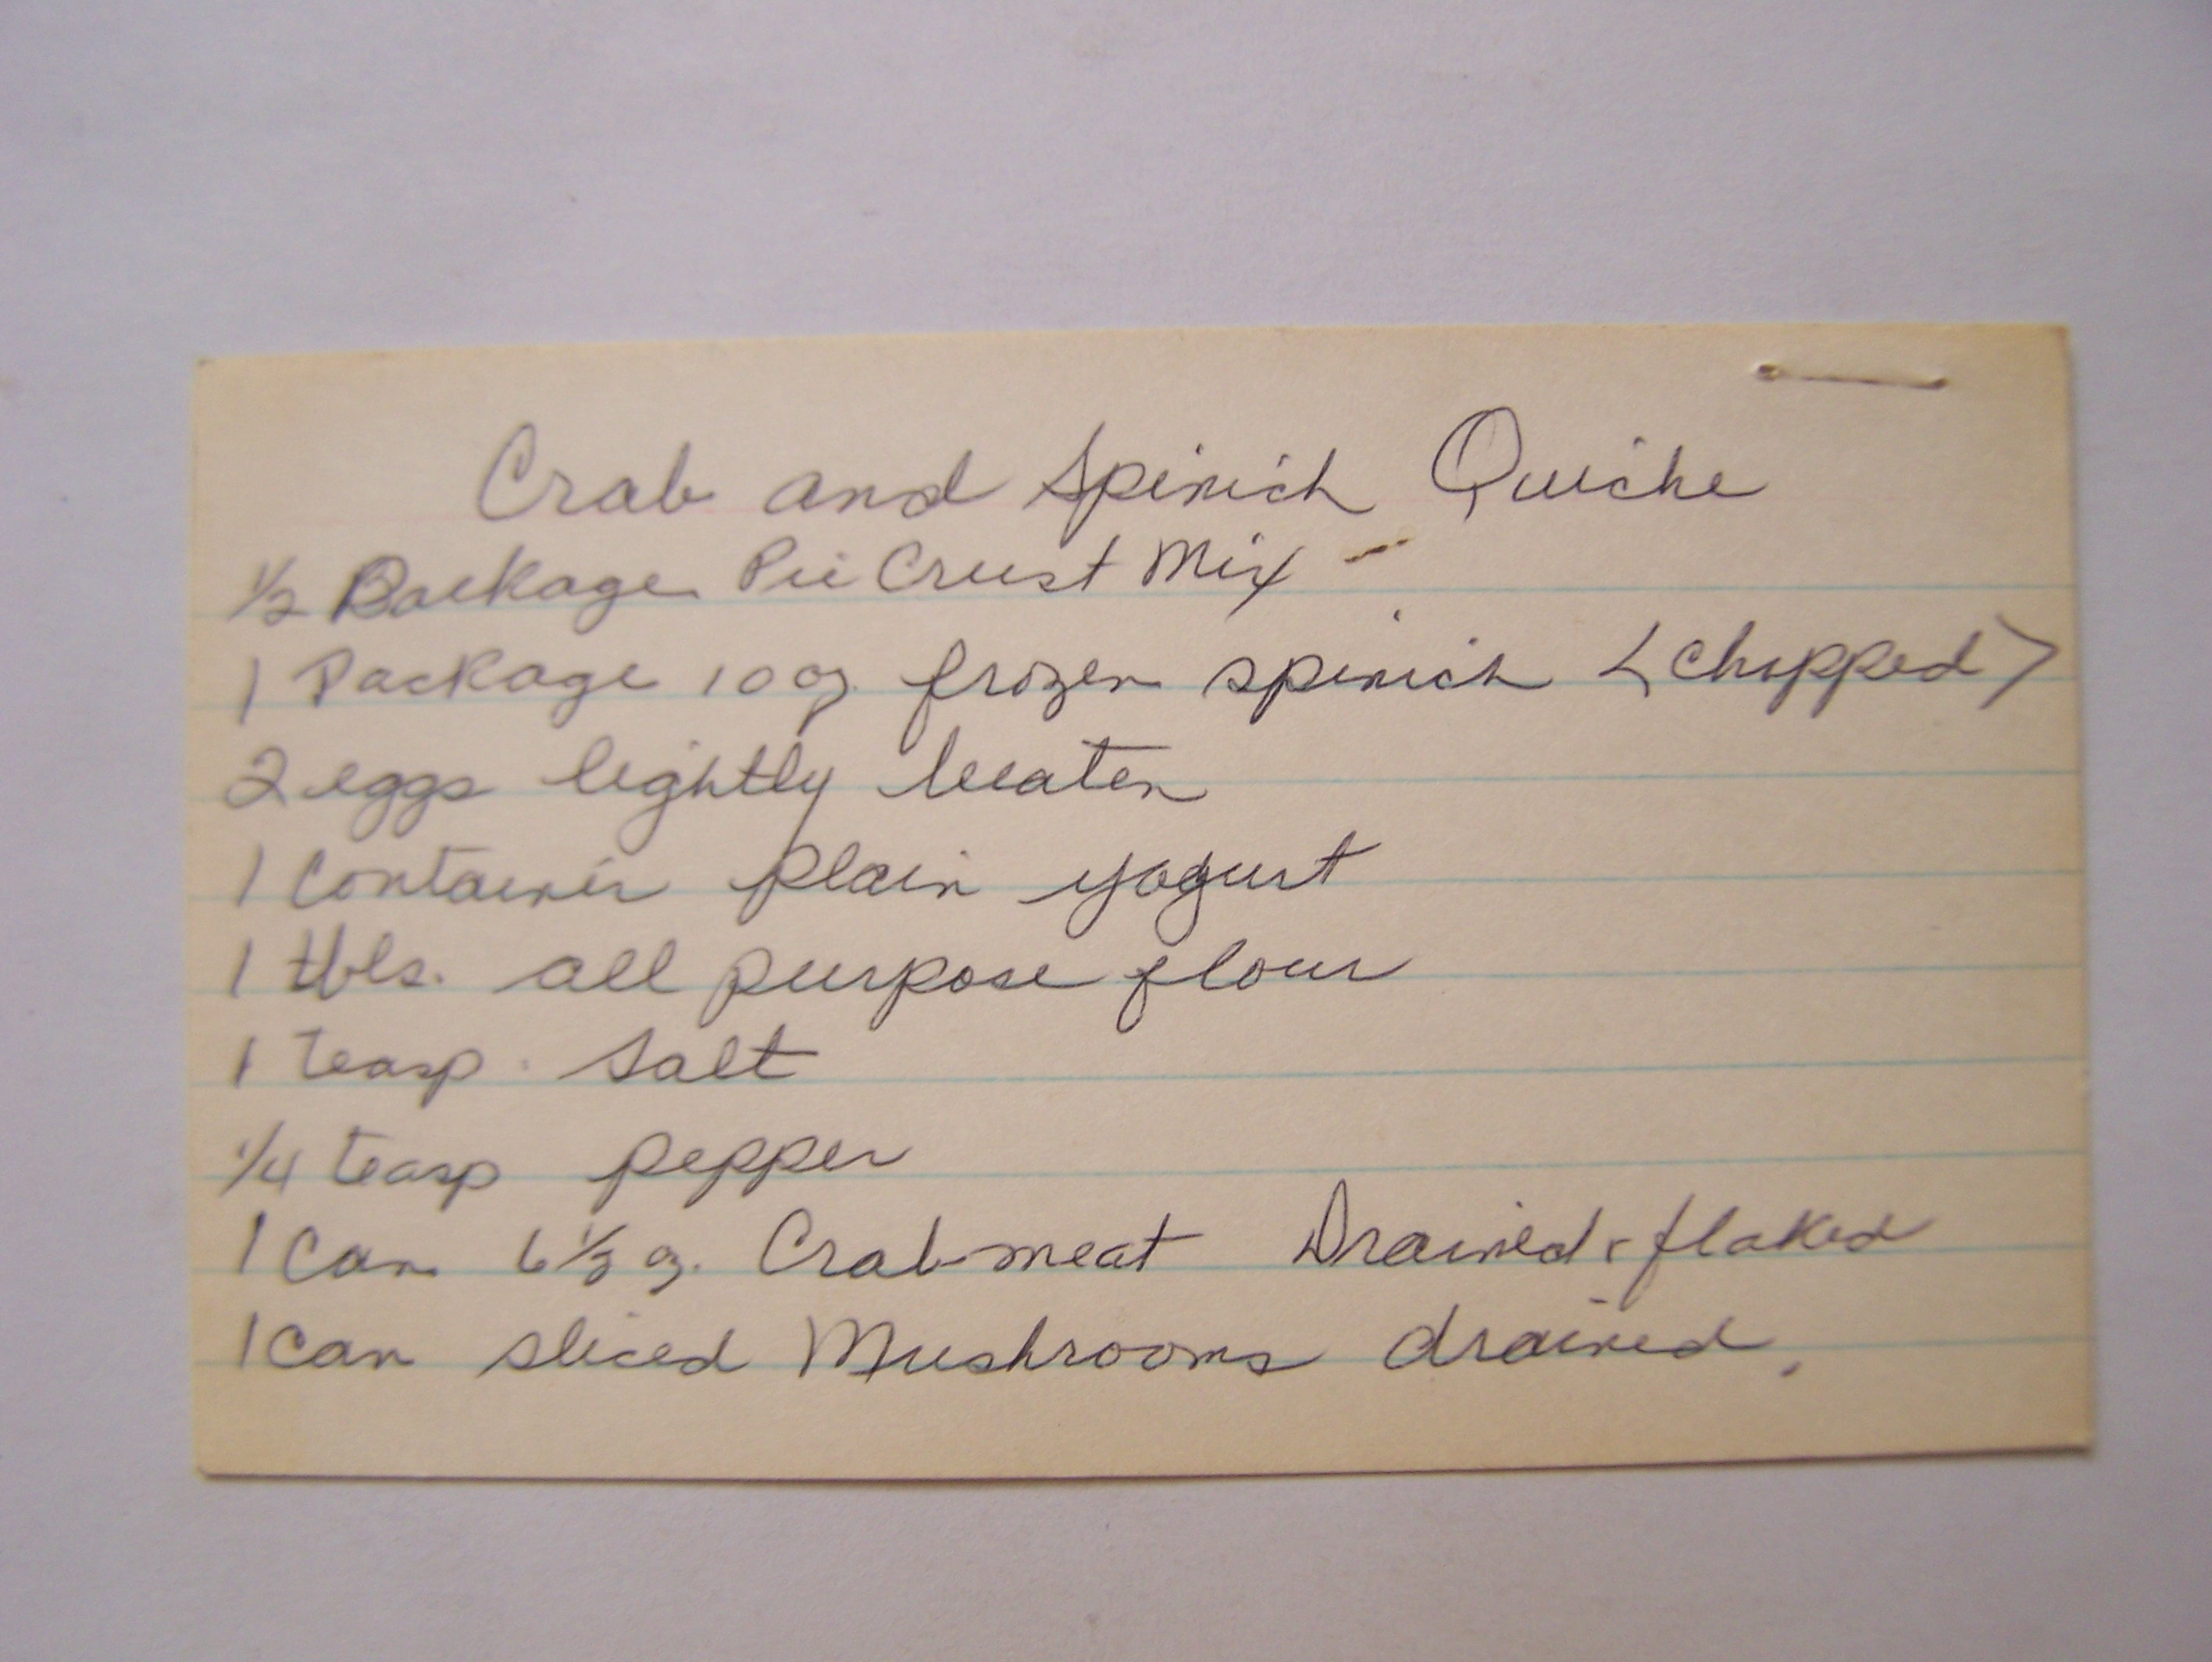 Crab and Spinich Quiche
1/2 Package Pie Crust Mix -
1 Package 10 oz. frozen spinich <chopped>
2 eggs lightly beaten
1 Container plain yogurt
1 tbls. all purpose flour
1 teasp. Salt
1/4 teasp pepper
1 Can 6 1/2 oz. Crabmeat Drained & flaked
1 can sliced Mushrooms drained.